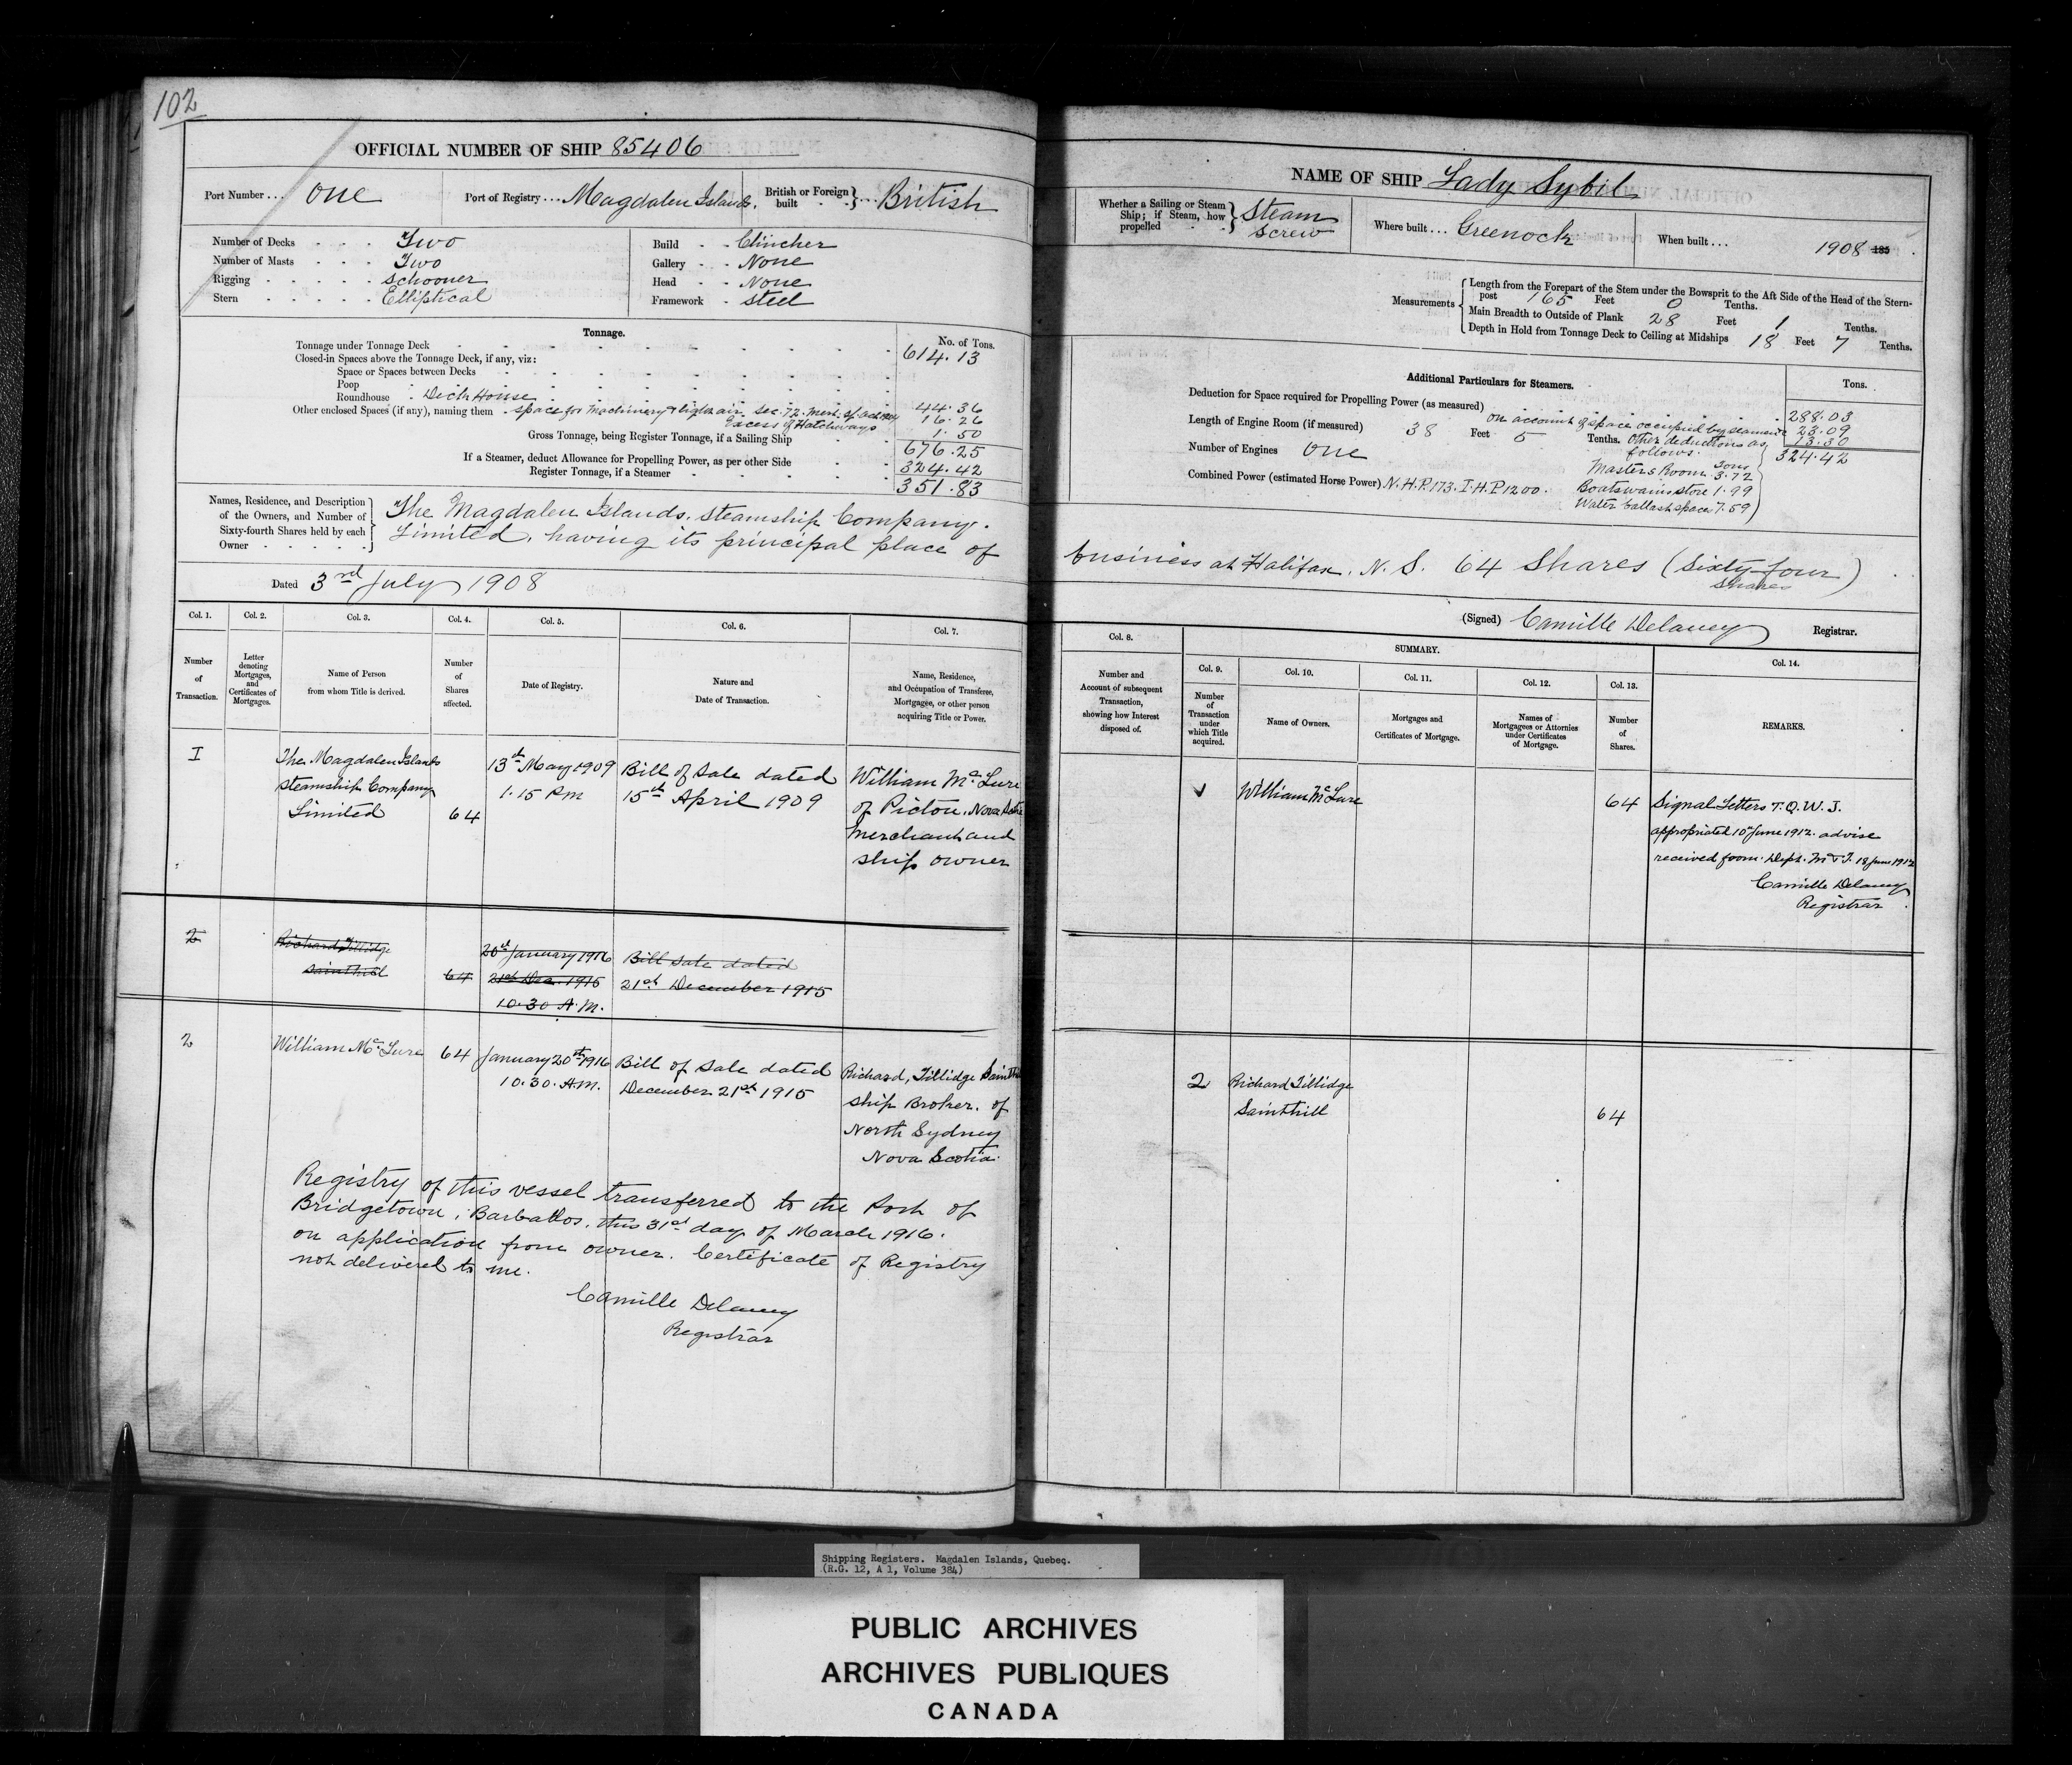 102
OFFICIAL NUMBER OF SHIP 85406
Port Number ... One Port of Registry ... Magdalen Islands. British or Foreign built ... British
Number of Decks Two
Number of Masts Two
Rigging Schooner
Stern Elliptical
Build Clincher
Gallery None
Head None
Framework Steel
Tonnage. No. of Tons.
Tonnage under Tonnage Deck 614.13
Closed-in Spaces above the Tonnage Deck, if any, viz:
Space or Spaces between Decks
Poop
Roundhouse Deck House 44.36
Other enclosed Spaces (if any), naming them space for machinery & light & air. Sec. 72. Mer. 16.26
Excess of Hatchways 1.50
Gross Tonnage, being Register Tonnage, if a Sailing Ship 676.25
If a Steamer, deduct Allowance for Propelling Power, as per other Side 324.42
Register Tonnage, if a Steamer 351.83
Names, Residence, and Description of the Owners, and Number of Sixty-fourth Shares held by each Owner
The Magdalen Islands. Steamship Company.
Limited, having its principal place of
Dated 3rd July 1908
Col. 1. Col. 2. Col. 3. Col. 4. Col. 5. Col. 6. Col. 7.
Number of Transaction.
Letter denoting Mortgages, and Certificates of Mortgages.
Name of Person from whom Title is derived.
Number of Shares affected.
Date of Registry.
Nature and Date of Transaction.
Name, Residence, and Occupation of Transferee, Mortgagee, or other person acquiring Title or Power.
I The Magdalen Islands 13th May 1909 Bill of Sale dated William McLure
Steamship Company 1.15 P.m 15th April 1909 of Pictou, Nova Scotia
Limited 64 Merchant and
ship owner
2 Richard Tillidge 20th January 1916 Bill Sale dated
Sainthill 64 21st Dec. 1915 21st December 1915
10.30 A.M.
2 William McLure 64 January 20th 1916 Bill of Sale dated Richard, Tillidge Sainthill
10.30. A.M. December 21st 1915 Ship Broker. of
North Sydney
Nova Scotia.
Registry of this vessel transferred to the Port of
Bridgetown, Barbados. this 31st day of March 1916.
on application from owner. Certificate of Registry
not delivered to me.
Camille Delaney
Registrar
NAME OF SHIP Lady Sybil
Whether a Sailing or Steam Ship; if Steam, how propelled Steam Screw
Where built ... Greenock When built ... 1908 185
Measurements
Length from the Forepart of the Stem under the Bowsprit to the Aft Side of the Head of the Stern-
post 165 Feet 0 Tenths.
Main Breadth to Outside of Plank 28 Feet 1 Tenths.
Depth in Hold from Tonnage Deck to Ceiling at Midships 18 Feet 7 Tenths.
Additional Particulars for Steamers. Tons.
Deduction for Space required for Propelling Power (as measured) 288.03
on account of space occupied by seamen 23.09
Length of Engine Room (if measured) 38 Feet 5 Tenths. Other deductions as follows. 13.30
324.42
Number of Engines One
Masters Room Tons 3.72
Combined Power (estimated Horse Power) N.H.P. 173. I.H.P 1200. Boatswains store 1.99
Water ballast space 7.59
business at Halifax, N.S. 64 Shares (Sixty four)
Shares
(Signed) Camille Delaney Registrar.
Col. 8.
Number and Account of subsequent Transaction, showing how Interest disposed of.
SUMMARY.
Col. 9. Col. 10. Col. 11. Col. 12. Col. 13. Col. 14.
Number of Transaction under which Title acquired.
Name of Owners.
Mortgages and Certificates of Mortgage.
Names of Mortgagees or Attornies under Certificates of Mortgage.
Number of Shares.
REMARKS.
William McLure 64 Signal Letters T.Q.W.J.
appropriated 10th June 1912. advise
received from. Dept. M & F. 18 June 1912
Camille Delaney
Registrar.
2 Richard Tillidge
Sainthill 64
Shipping Registers. Magdalen Islands, Quebec.
(R.G. 12, A 1, Volume 384)
PUBLIC ARCHIVES
ARCHIVES PUBLIQUES
CANADA